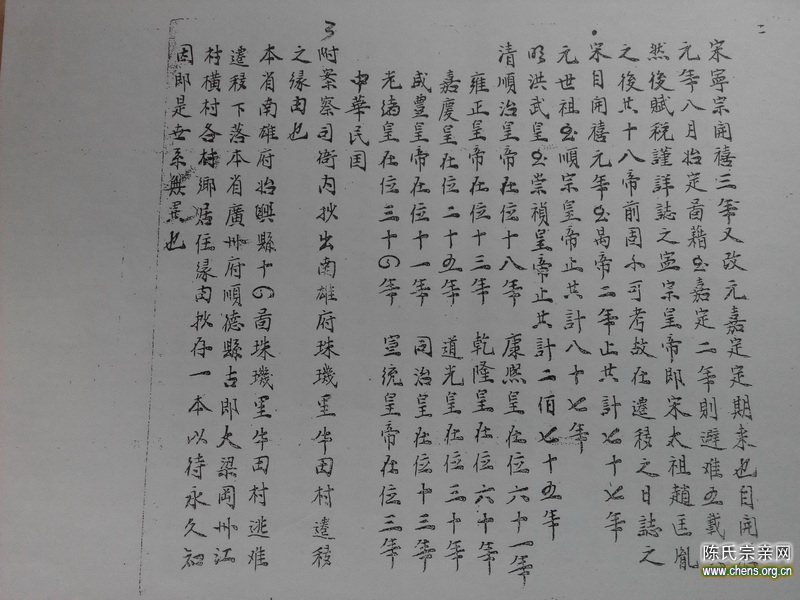 二
宋寧宗開禧三年又改元嘉定定期来也自開
元年八月始定啚籍至嘉定二年則避难五載
然後賦税謹詳誌之寧宗皇帝即宋太祖趙匡胤
之後共十八帝前固不可考故在遷移之日誌之
宋自開禧元年至昺帝二年止共計七十七年
元世祖至順宗皇帝止共計八十七年
明洪武皇至崇禎皇帝止共計二佰七十五年
清順治皇帝在位十八年 康熙皇在位六十一年
雍正皇帝在位十三年 乾隆皇在位六十年
嘉慶皇在位二十五年 道光皇在位三十年
咸豊皇帝在位十一年 同治皇在位十三年
光緒皇在位三十四年 宣統皇帝在位三年
中華民国
附案察司衙内抄出南雄府珠璣里牛田村遷移
之缘由也
本省南雄府始興縣十四啚珠璣里牛田村逃难
遷移下落本省廣州府順德縣古郎大梁岡州江
村横村各村鄉居住缘由抄存一本以待永久初
因即是世系興
也
陈氏宗亲网
www.chens.org.cn